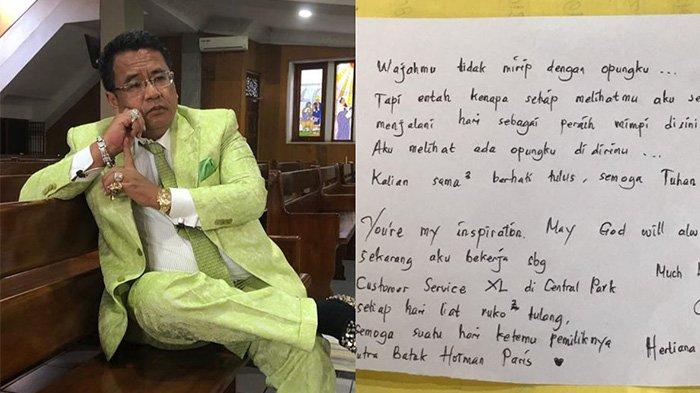 Wajahmu tidak mirip dengan opungku ...
Tapi entah kenapa setiap melihatmu aku se
menjalani hari sebagai peraih mimpi disini
Aku melihat ada opungku di dirimu ...
Kalian sama² berhati tulus, semoga Tuhan
You're my inspiraton. May God will alw
sekarang aku bekerja sbg
Much
Customer Service XL di Central Park
setiap hari liat ruko² tulang,
semoga suatu hari ketemu pemiliknya
Herliana
utra Batak Hotman Paris ♥